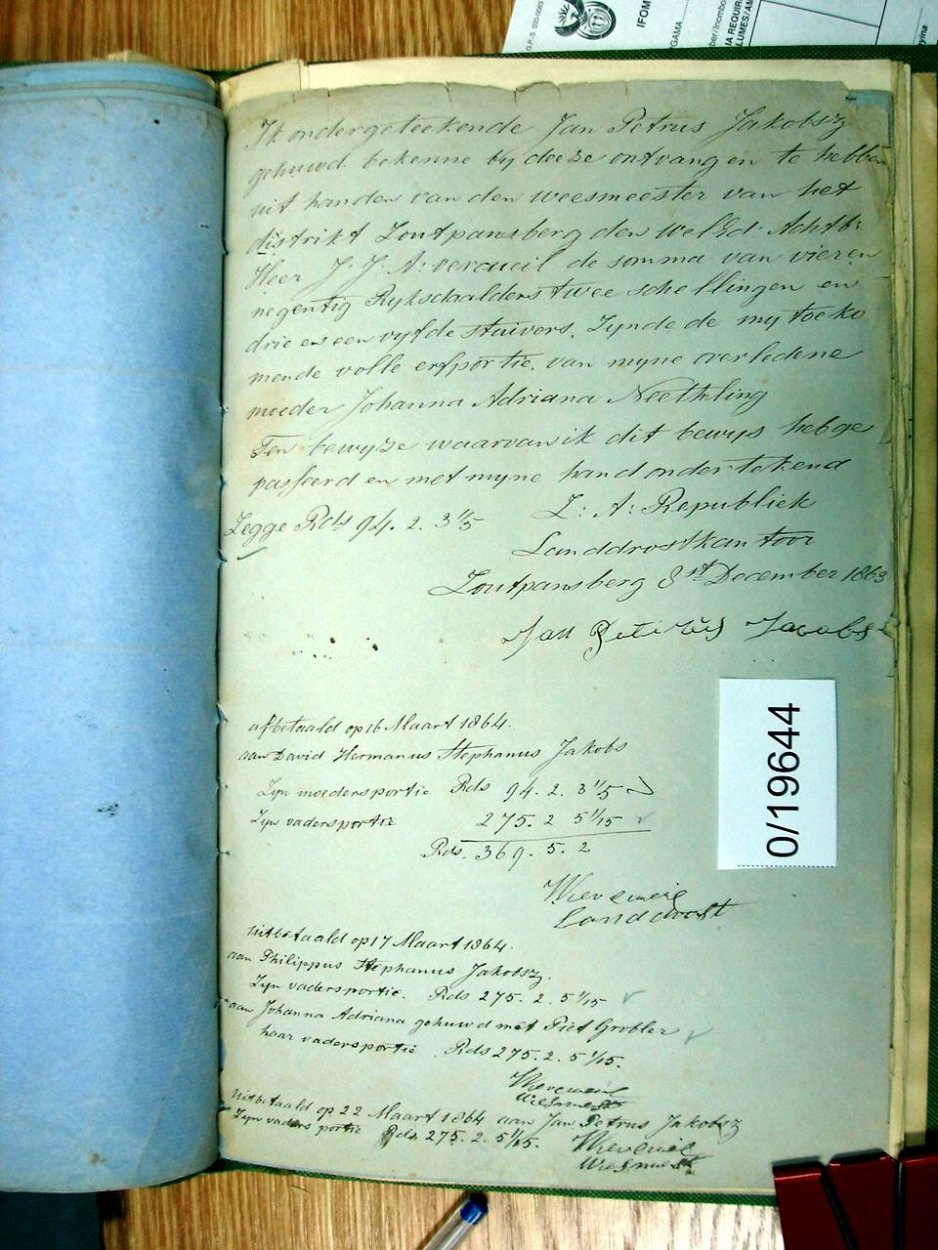 G.P.-S. 005-0083
IFOM
GAMA
Ik ondergeteekende Jan Petrus Jakobsz
gehuwd bekenne by deeze ontvangen te hebben
uit handen van den weesmeester van het
distrikt Zoutpansberg den WelEd: Achtb:
Heer J. J. A: Vercueil de somma van vier en
negentig Ryksdaalders twee schellingen en
drie en een vyfde stuivers. Zynde de my toeko
mende volle erfportie. van myne overledene
moeder Johanna Adriana Neethling
Ten bewyze waarvan ik dit bewys heb ge
passeerd en met myne hand ondertekend
Zegge Rds 94. 2. 3 1/5
Z: A: Republiek
Landdrostkantoor
Zoutpansberg 8st December 1863
Jan Peterus Jacobs
0/19644
afbetaald op 16 Maart 1864.
aan David Hermanus Stephanus Jakobs
Zyn moedersportie Rds 94. 2. 3 1/5
Zyn vadersportie 275. 2 5 1/15
Rds. 369. 5. 2
Landdrost
uitbetaald op 17 Maart 1864.
aan Philippus Stephanus Jakobsz.
Zyn vadersportie. Rds 275. 2. 5 1/15
aan Johanna Adriana gehuwd met Piet Grobler
haar vadersportie. Rds 275. 2. 5 1/15.
Weesmeestr
uitbetaald op 22 Maart 1864 aan Jan Petrus Jakobsz
Zyn vaders portie Rds. 275. 2. 5 1/15.
Weesmeestr